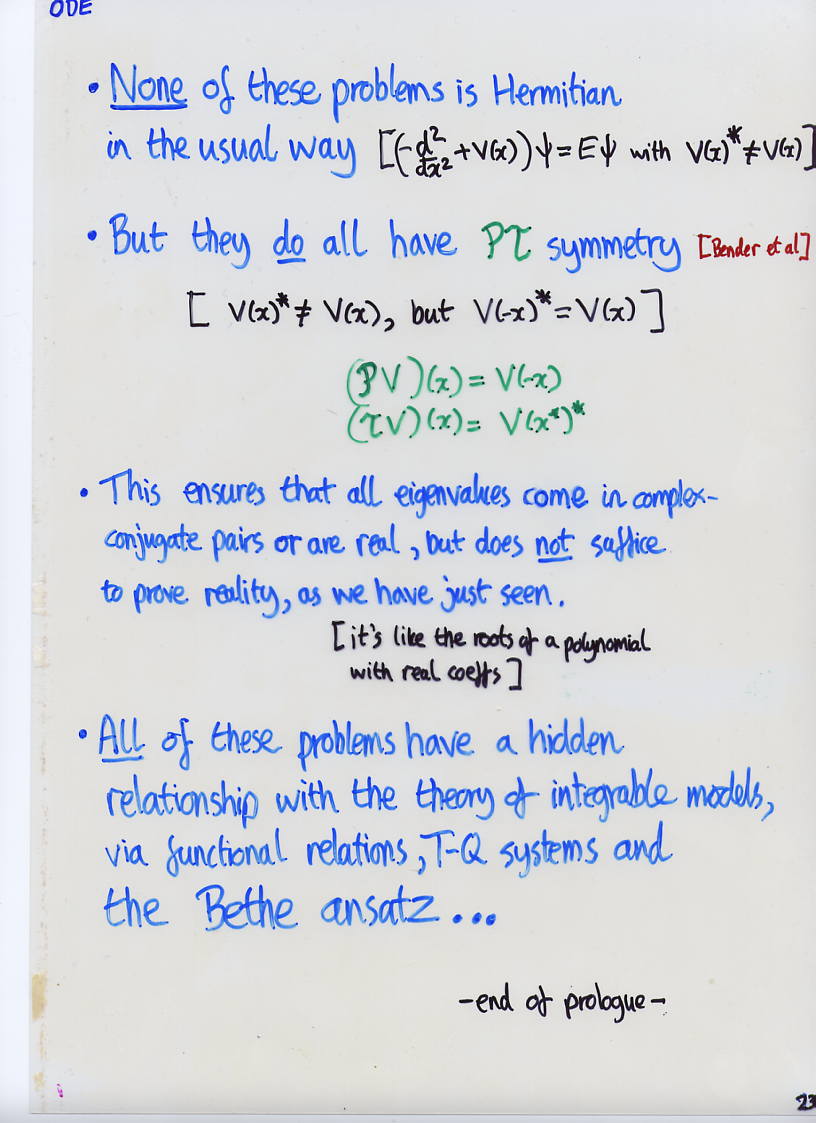 ODE
• None of these problems is Hermitian
in the usual way [(-d²/dx² + V(x))ψ = Eψ with V(x)* ≠ V(x)]
• But they do all have PT symmetry [Bender et al]
[ V(x)* ≠ V(x), but V(-x)* = V(x) ]
(PV)(x) = V(-x)
(TV)(x) = V(x*)*
• This ensures that all eigenvalues come in complex-
conjugate pairs or are real, but does not suffice
to prove reality, as we have just seen.
[it's like the roots of a polynomial
with real coeffs]
• All of these problems have a hidden
relationship with the theory of integrable models,
via functional relations, T-Q systems and
the Bethe ansatz...
-end of prologue-
23